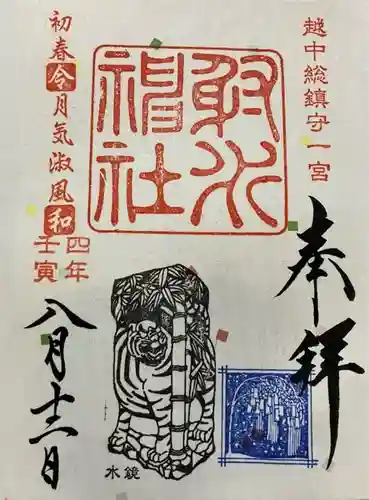 越中総鎮守一宮
奉拝
射水
神社
初春令月気淑風和
四年
壬寅
八月十二日
水鏡